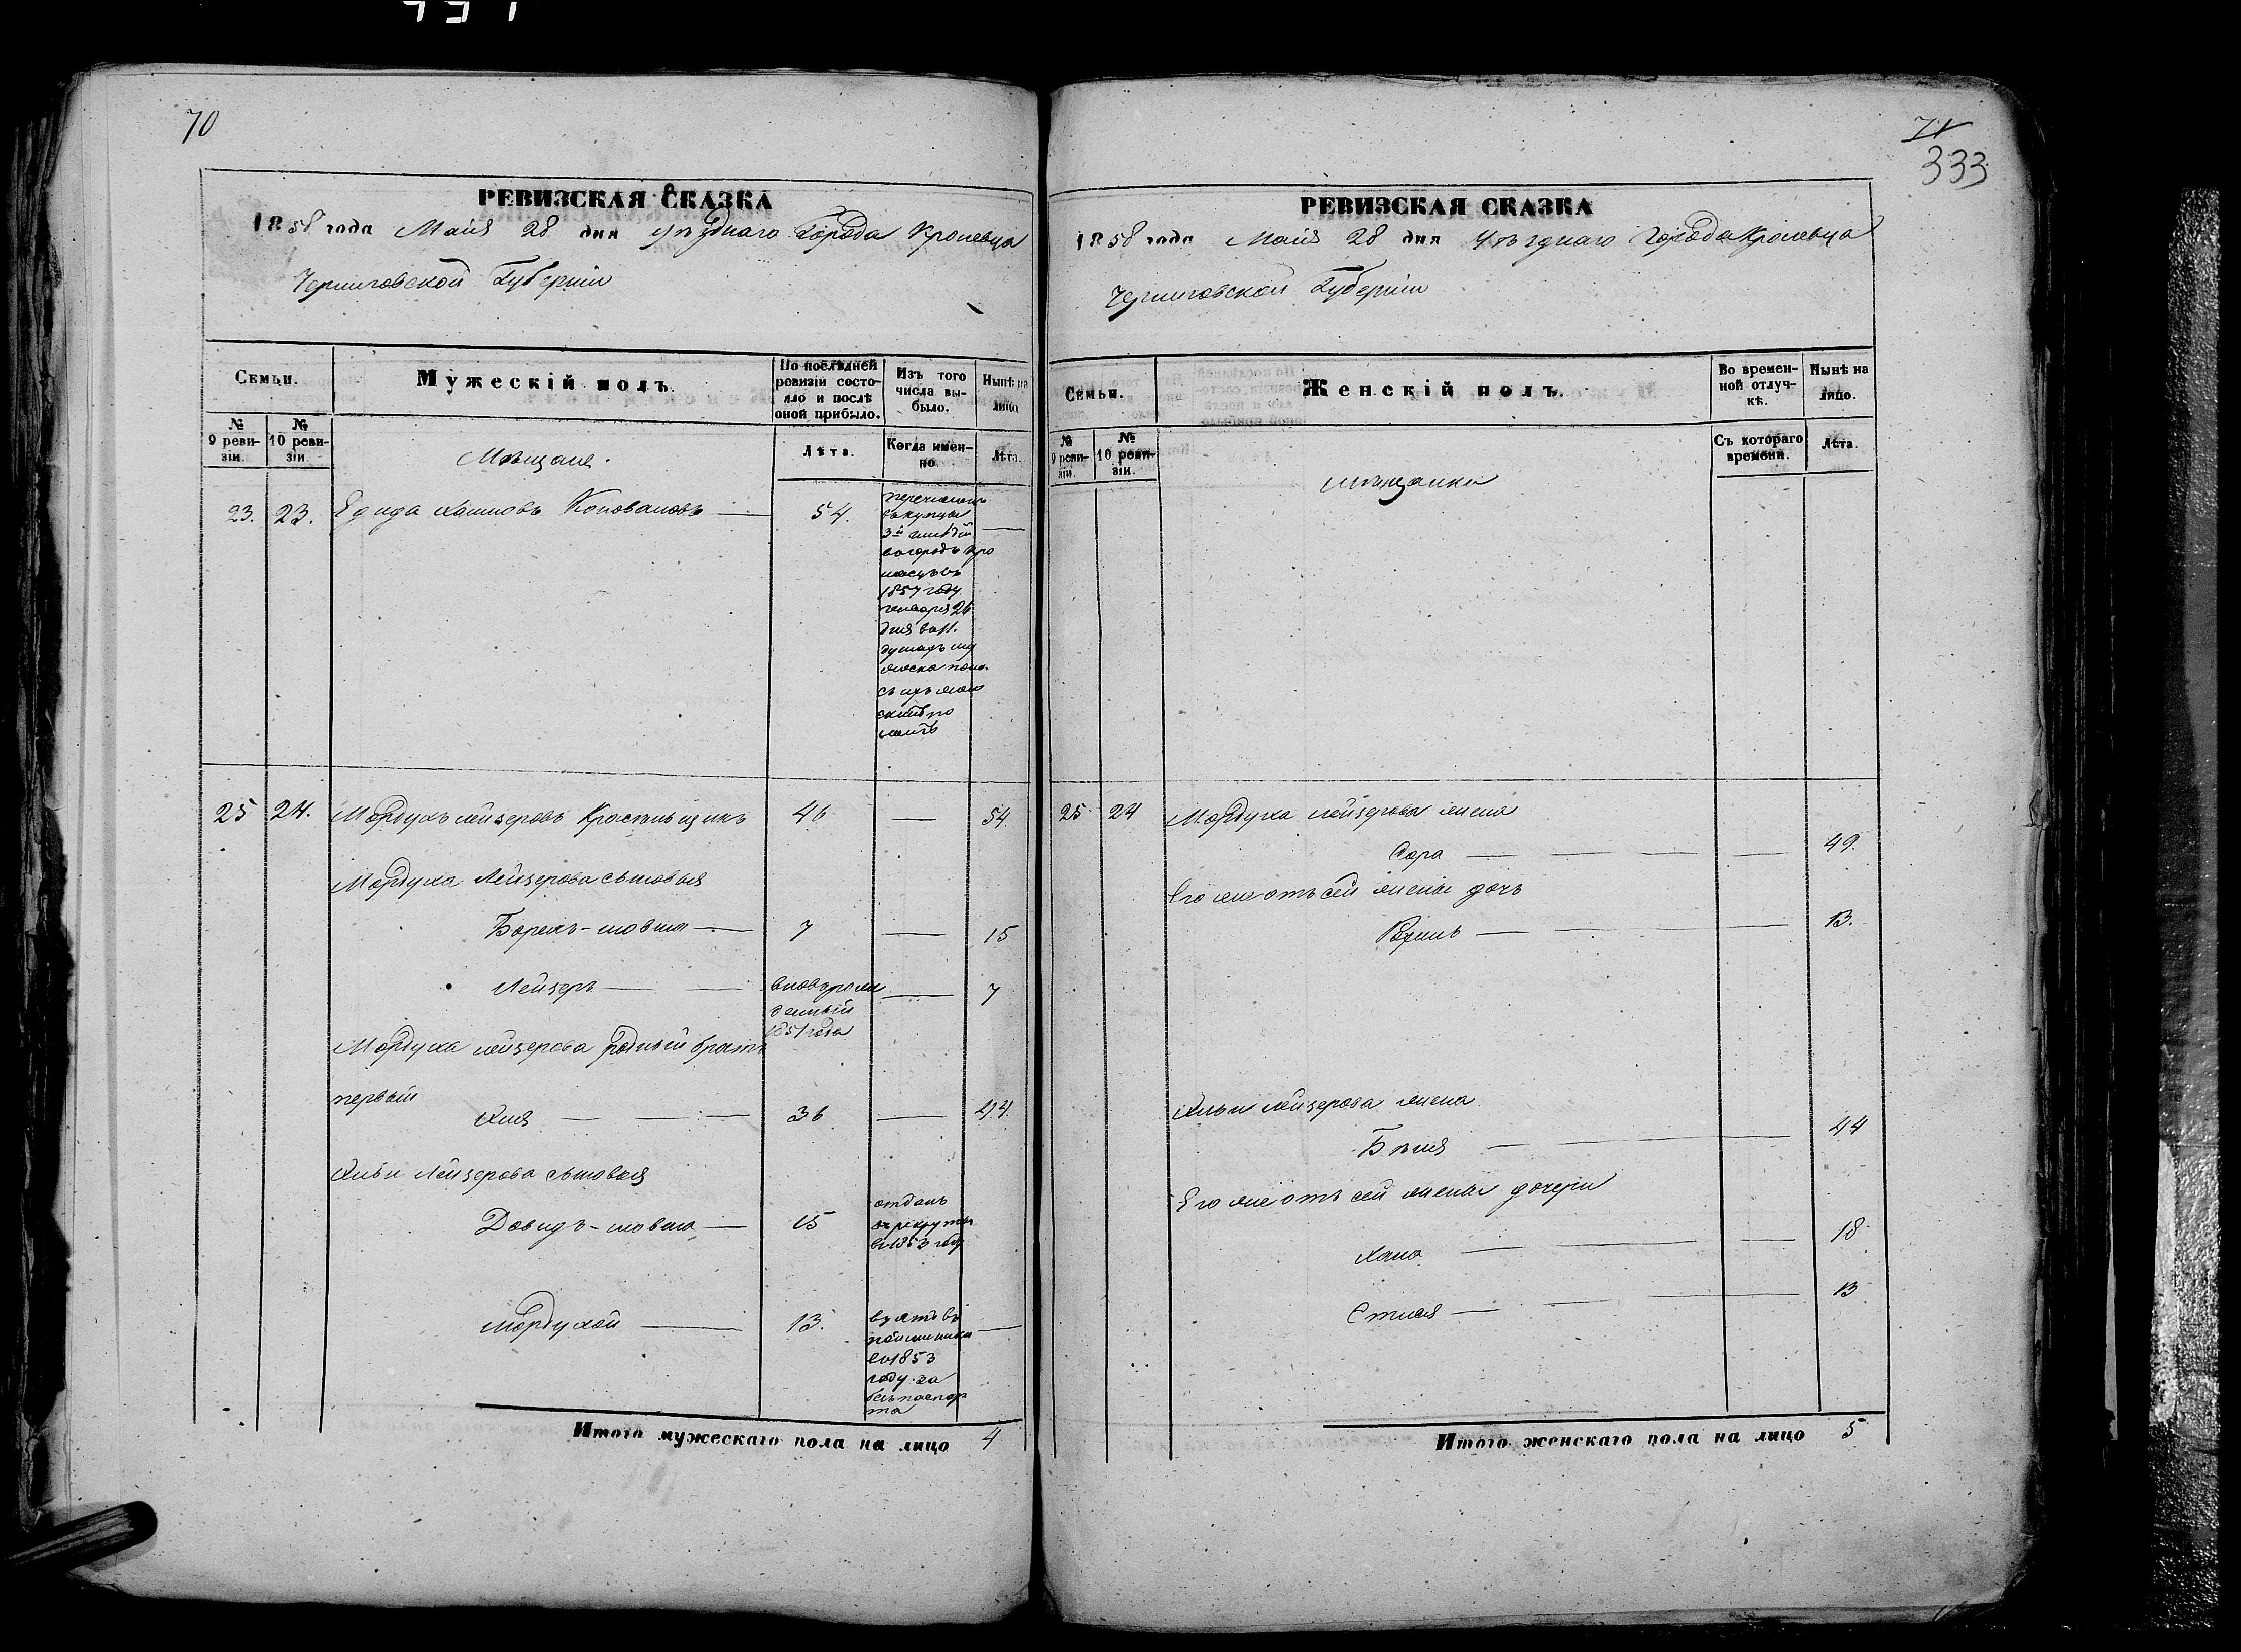 70
РЕВИЗСКАЯ СКАЗКА
1858 года Майя 28 дня уѣзднаго Города Кролевца
Черниговской Губерніи
Семьи.
Мужескій полъ.
По послѣдней ревизіи состояло и послѣ оной прибыло.
Изъ того числа выбыло.
Нынѣ на лицо
№ 9 ревизіи.
№ 10 ревизіи.
Мѣщане.
Лѣта.
Когда именно.
Лѣта.
23. 23. Хаимовъ — 54.
перечисленъ
въ купцы
3й гильдіи
въ городъ Кро
левецъ въ
1857 году
генваря 26
дня
25 24. Мордухъ Лейзеровъ 46 — 54.
Мордуха Лейзерова сыновья
Борехъ-шовна — 7 — 15
Лейзеръ — — вновьрож — 7
денный
1851 года
Мордуха Лейзерова родный братъ
первый
Хия — — — 36 — 44.
Лейзерова сыновья
Довидъ-шовна — 15
отданъ
в рекруты
въ 1853 году
Мордухай — 13. —
взятъ въ
пойминики
въ 1853
году за
безъ паспор
та
Итого мужескаго пола на лицо 4
71
333
РЕВИЗСКАЯ СКАЗКА
1858 года Майя 28 дня Уѣзднаго Города Кролевца
Черниговской Губерніи
Семьи.
Женскій полъ.
Во временной отлучкѣ.
Нынѣ на лицо.
№ 9 ревизіи.
№ 10 ревизіи.
Мѣщанки
Съ котораго времени.
Лѣта.
25 24 Мордуха Лейзерова жена
Сора — — — — 49.
Его же отъ сей жены дочь
— — — — 13.
Лейзерова жена
— — — 44
Его же отъ сей жены дочери
Хана — — — 18
— — — 13
Итого женскаго пола на лицо 5